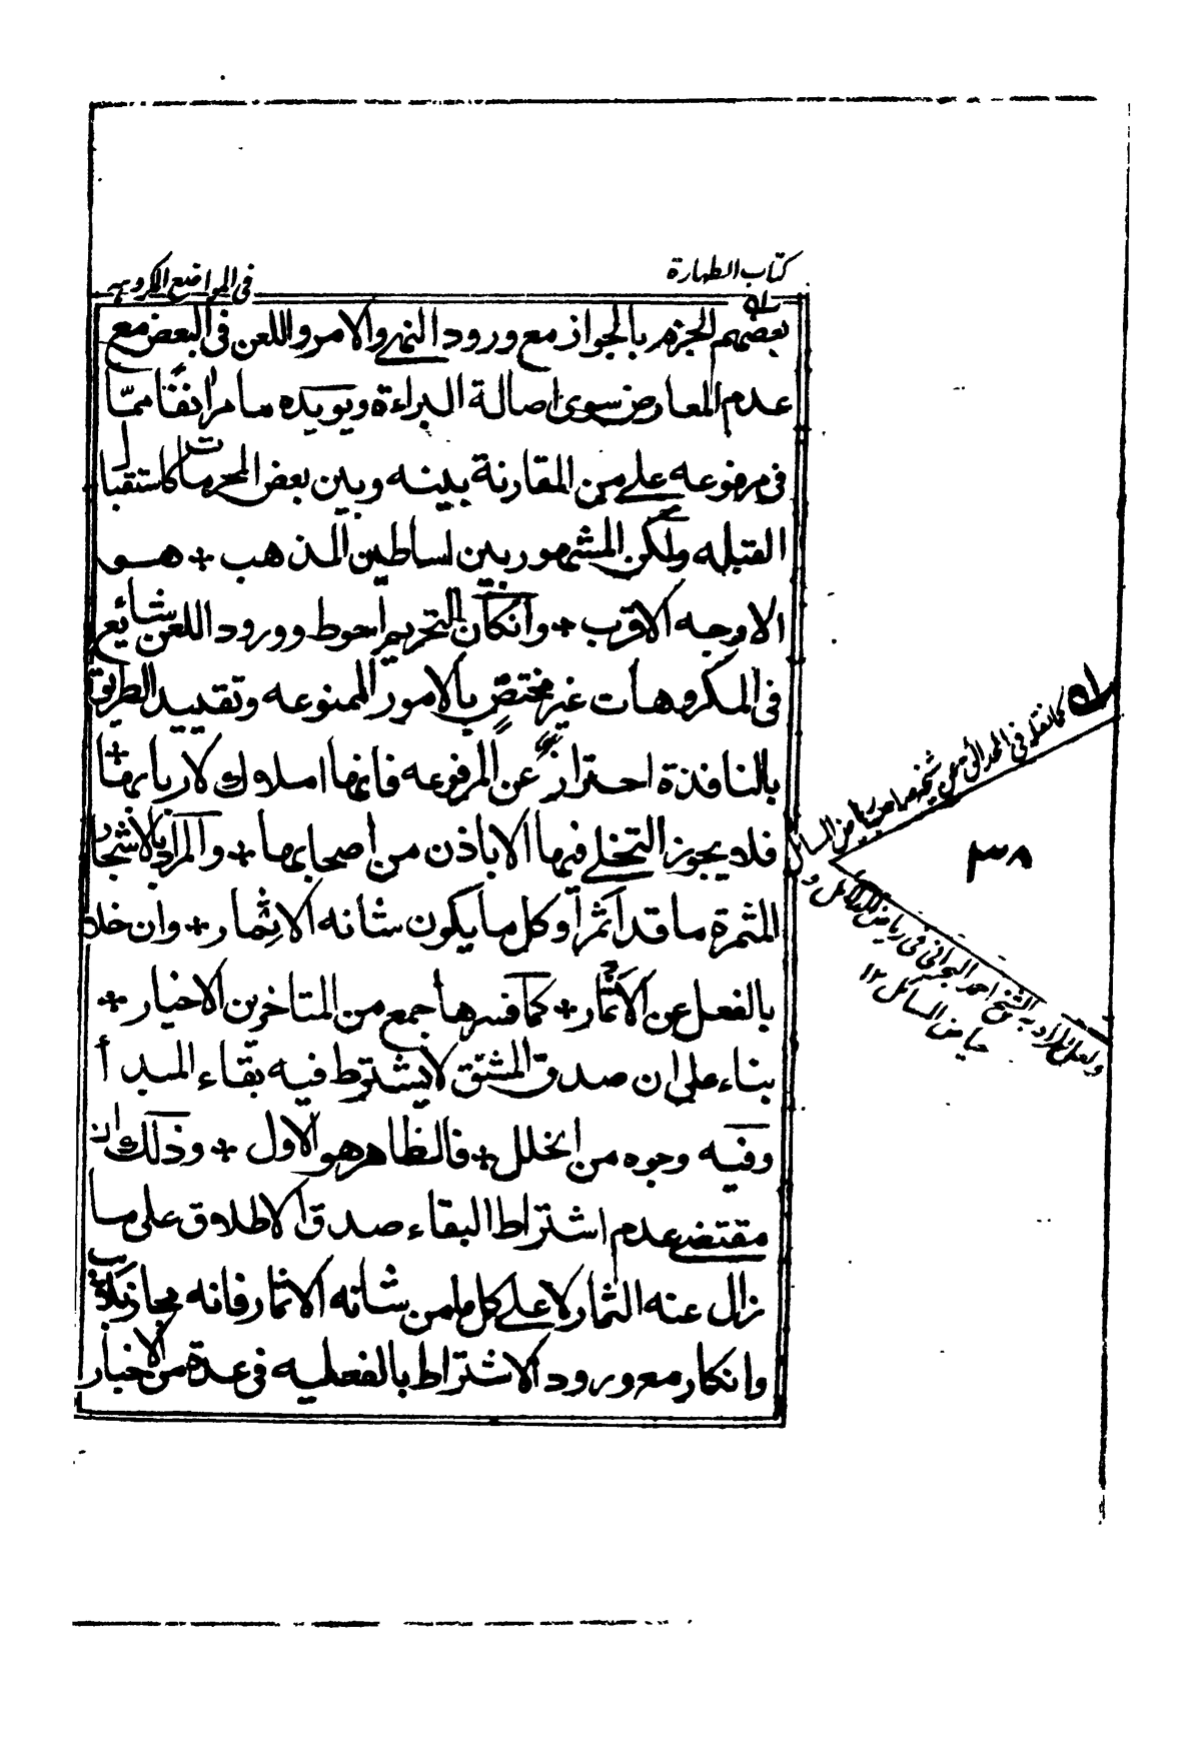 كتاب الطهارة
في المواضع المكروهه
بعضهم الجزم بالجواز مع ورود النهي والامر واللعن في البعض مع
عدم المعارض سوى اصالة البراءة ويويده ما مر انفًا ممّا
في مرفوعه علي من المقارنة بينه وبين بعض المحرمات كاستقبال
القبله ولكن المشهور بين اساطين المذهب + هو
الاوجه الاقرب + وانكان التحريم احوط وورود اللعن شائع
في المكروهات غير مختص بالامور الممنوعه وتقييد الطريق
بالنافذة احتراز عن المرفوعه فانها املاك لاربابها +
فلا يجوز التخلي فيها الا باذن من اصحابها + والمراد بالاشجار
المثمرة ما قد اثمر او كل ما يكون شانه الاثمار + وان خلا
بالفعل عن الاثمار + كما فسرها جمع من المتاخرين الاخيار +
بناء على ان صدق المشتق لا يشترط فيه بقاء المبدأ
وفيه وجوه من الخلل + فالظاهر هو الاول + وذلك ان
مقتضى عدم اشتراط البقاء صدق الاطلاق على ما
زال عنه الثمار لا على كل ما من شانه الاثمار فانه مجاز
وانكار مع ورود الاشتراط بالفعليه في عدة من الاخبار
كما نقله في الحدائق عن شيخه صاحب رياض المسائل
ولعل المراد به الشيخ احمد البحراني في رياض الدلائل و
حياض المسائل ١٢
٣٨